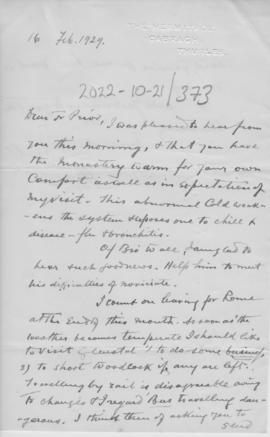 THE HERMITAGE,
CABRAGH,
THURLES.
16 Feb. 1929.
2022-10-21/373
Dear Fr Prior,
I was pleased to hear from
you this morning, & that you have
the monastery warm for your own
Comfort as well as in expectation of
my visit - this abnormal Cold weak-
ens the system exposes one to chill &
disease - flu & bronchitis.
Of Bro I am glad to
hear such good news. Help him to meet
his difficulties of noviciate.
I count on leaving for Rome
at the End of this month. As soon as the
weather becomes temperate I should like
to visit Glenstal 1) to do some business,
2) to shoot Woodcock if any are left.
Travelling by rail is disagreeable owing
to changes & I regard Bus travelling dan-
gerous. I think then of asking you to
send